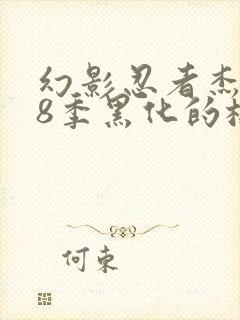 幻影忍者杰
8季黑化的
何束